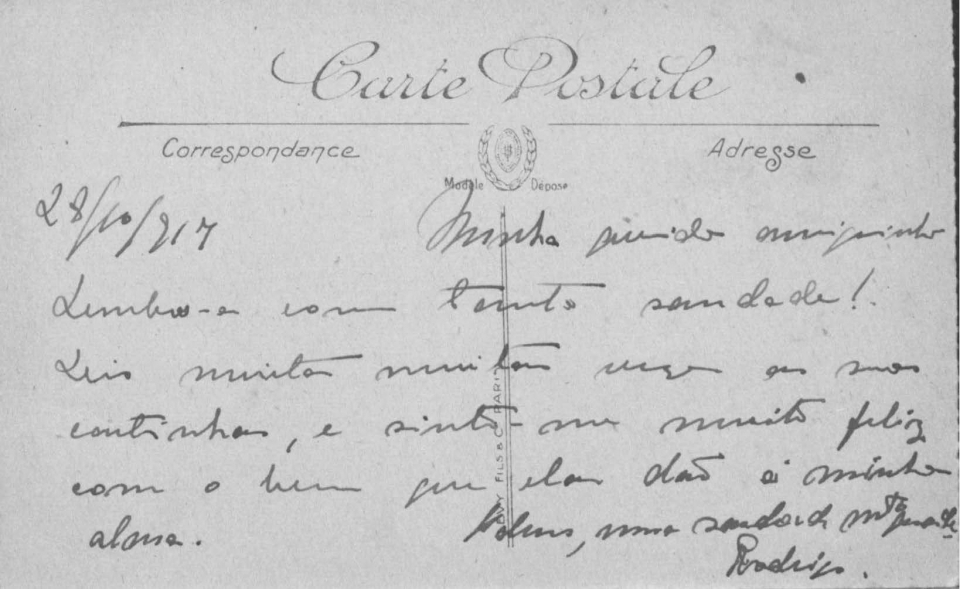 Carte Postale
Correspondance
Adresse
Modèle Déposé
28/10/917
Minha querida amiguinha
Lembro-a com tanta saudade!
Leio muitas muitas vezes as suas
cartinhas, e sinto-me muito feliz
com o bem que elas dão á minha
alma.
Adeus, uma saudade mto grande
Rodrigo.
FILS & C PARIS